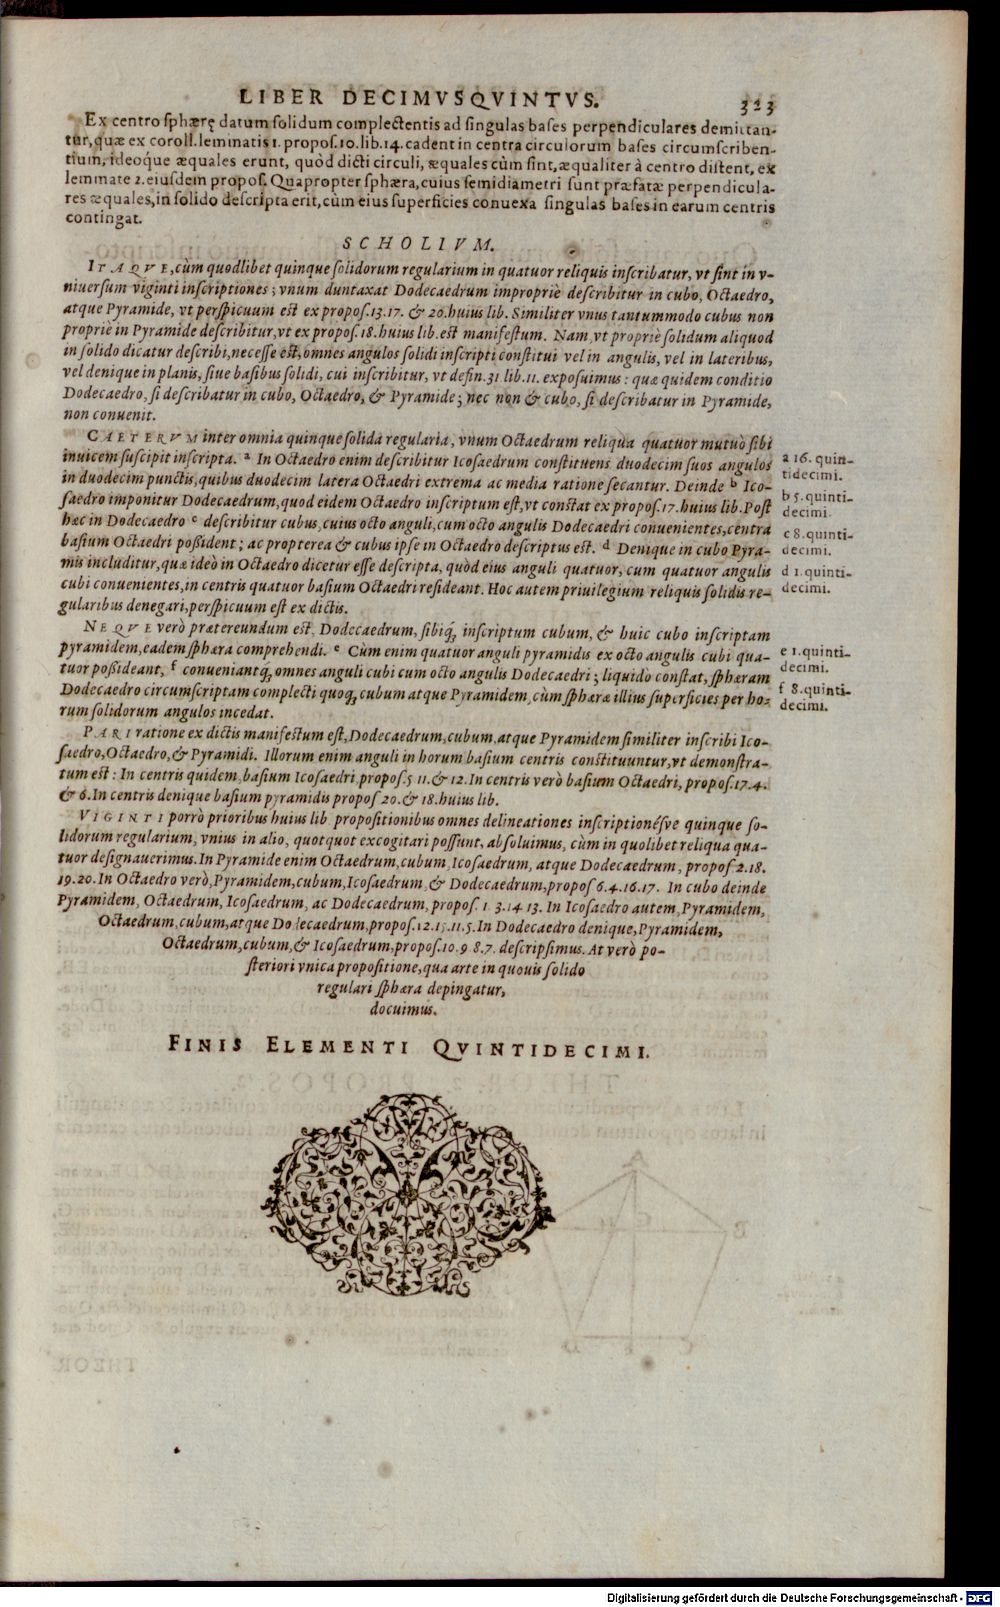 LIBER DECIMVSQVINTVS. 323
Ex centro sphærę datum solidum complectentis ad singulas bases perpendiculares demittan-
tur, quæ ex coroll. lemmatis 1. propos. 10. lib. 14. cadent in centra circulorum bases circumscriben-
tium, ideoque æquales erunt, quòd dicti circuli, æquales cùm sint, æqualiter à centro distent, ex
lemmate 2. eiusdem propos. Quapropter sphæra, cuius semidiametri sunt præfatæ perpendicula-
res æquales, in solido descripta erit, cùm eius superficies conuexa singulas bases in earum centris
contingat.
SCHOLIVM.
ITAQVE, cùm quodlibet quinque solidorum regularium in quatuor reliquis inscribatur, vt sint in v-
niuersum viginti inscriptiones; vnum duntaxat Dodecaedrum impropriè describitur in cubo, Octaedro,
atque Pyramide, vt perspicuum est ex propos. 13. 17. & 20. huius lib. Similiter vnus tantummodo cubus non
propriè in Pyramide describitur, vt ex propos. 18. huius lib. est manifestum. Nam, vt propriè solidum aliquod
in solido dicatur describi, necesse est, omnes angulos solidi inscripti constitui vel in angulis, vel in lateribus,
vel denique in planis, siue basibus solidi, cui inscribitur, vt defin. 31. lib. 11. exposuimus: quæ quidem conditio
Dodecaedro, si describatur in cubo, Octaedro, & Pyramide; nec non & cubo, si describatur in Pyramide,
non conuenit.
CAETERVM inter omnia quinque solida regularia, vnum Octaedrum reliqua quatuor mutuò sibi
inuicem suscipit inscripta. a In Octaedro enim describitur Icosaedrum constituens duodecim suos angulos
in duodecim punctis, quibus duodecim latera Octaedri extrema ac media ratione secantur. Deinde b Ico-
saedro imponitur Dodecaedrum, quod eidem Octaedro inscriptum est, vt constat ex propos. 17. huius lib. Post
hæc in Dodecaedro c describitur cubus, cuius octo anguli, cum octo angulis Dodecaedri conuenientes, centra
basium Octaedri possident; ac propterea & cubus ipse in Octaedro descriptus est. d Denique in cubo Pyra-
mis includitur, quæ ideò in Octaedro dicetur esse descripta, quòd eius anguli quatuor, cum quatuor angulis
cubi conuenientes, in centris quatuor basium Octaedri resideant. Hoc autem priuilegium reliquis solidis re-
gularibus denegari, perspicuum est ex dictis.
a 16. quin-
tidecimi.
b 5. quinti-
decimi.
c 8. quinti-
decimi.
d 1. quinti-
decimi.
NEQVE verò prætereundum est, Dodecaedrum, sibiq́, inscriptum cubum, & huic cubo inscriptam
pyramidem, eadem sphæra comprehendi. e Cum enim quatuor anguli pyramidis ex octo angulis cubi qua-
tuor possideant, f conueniantq́, omnes anguli cubi cum octo angulis Dodecaedri; liquidò constat, sphæram
Dodecaedro circumscriptam complecti quoq, cubum atque Pyramidem, cùm sphæræ illius superficies per ho-
rum solidorum angulos incedat.
e 1. quinti-
decimi.
f 8. quinti-
decimi.
PARI ratione ex dictis manifestum est, Dodecaedrum, cubum, atque Pyramidem similiter inscribi Ico-
saedro, Octaedro, & Pyramidi. Illorum enim anguli in horum basium centris constituuntur, vt demonstra-
tum est: In centris quidem, basium Icosaedri, propos. 5 11. & 12. In centris verò basium Octaedri, propos. 17. 4.
& 6. In centris denique basium pyramidis propos 20. & 18. huius lib.
VIGINTI porrò prioribus huius lib. propositionibus omnes delineationes inscriptionésve quinque so-
lidorum regularium, vnius in alio, quotquot excogitari possunt, absoluimus, cùm in quolibet reliqua qua-
tuor designauerimus. In Pyramide enim Octaedrum, cubum, Icosaedrum, atque Dodecaedrum, propos 2. 18.
19. 20. In Octaedro verò, Pyramidem, cubum, Icosaedrum, & Dodecaedrum, propos 6. 4. 16. 17. In cubo deinde
Pyramidem, Octaedrum, Icosaedrum, ac Dodecaedrum, propos. 1 3. 14 13. In Icosaedro autem, Pyramidem,
Octaedrum, cubum, atque Dodecaedrum, propos. 12. 15. 11. 5. In Dodecaedro denique, Pyramidem,
Octaedrum, cubum, & Icosaedrum, propos. 10. 9. 8. 7. descripsimus. At verò po-
steriori vnica propositione, qua arte in quouis solido
regulari sphæra depingatur,
docuimus.
FINIS ELEMENTI QVINTIDECIMI.
Digitalisierung gefördert durch die Deutsche Forschungsgemeinschaft - DFG